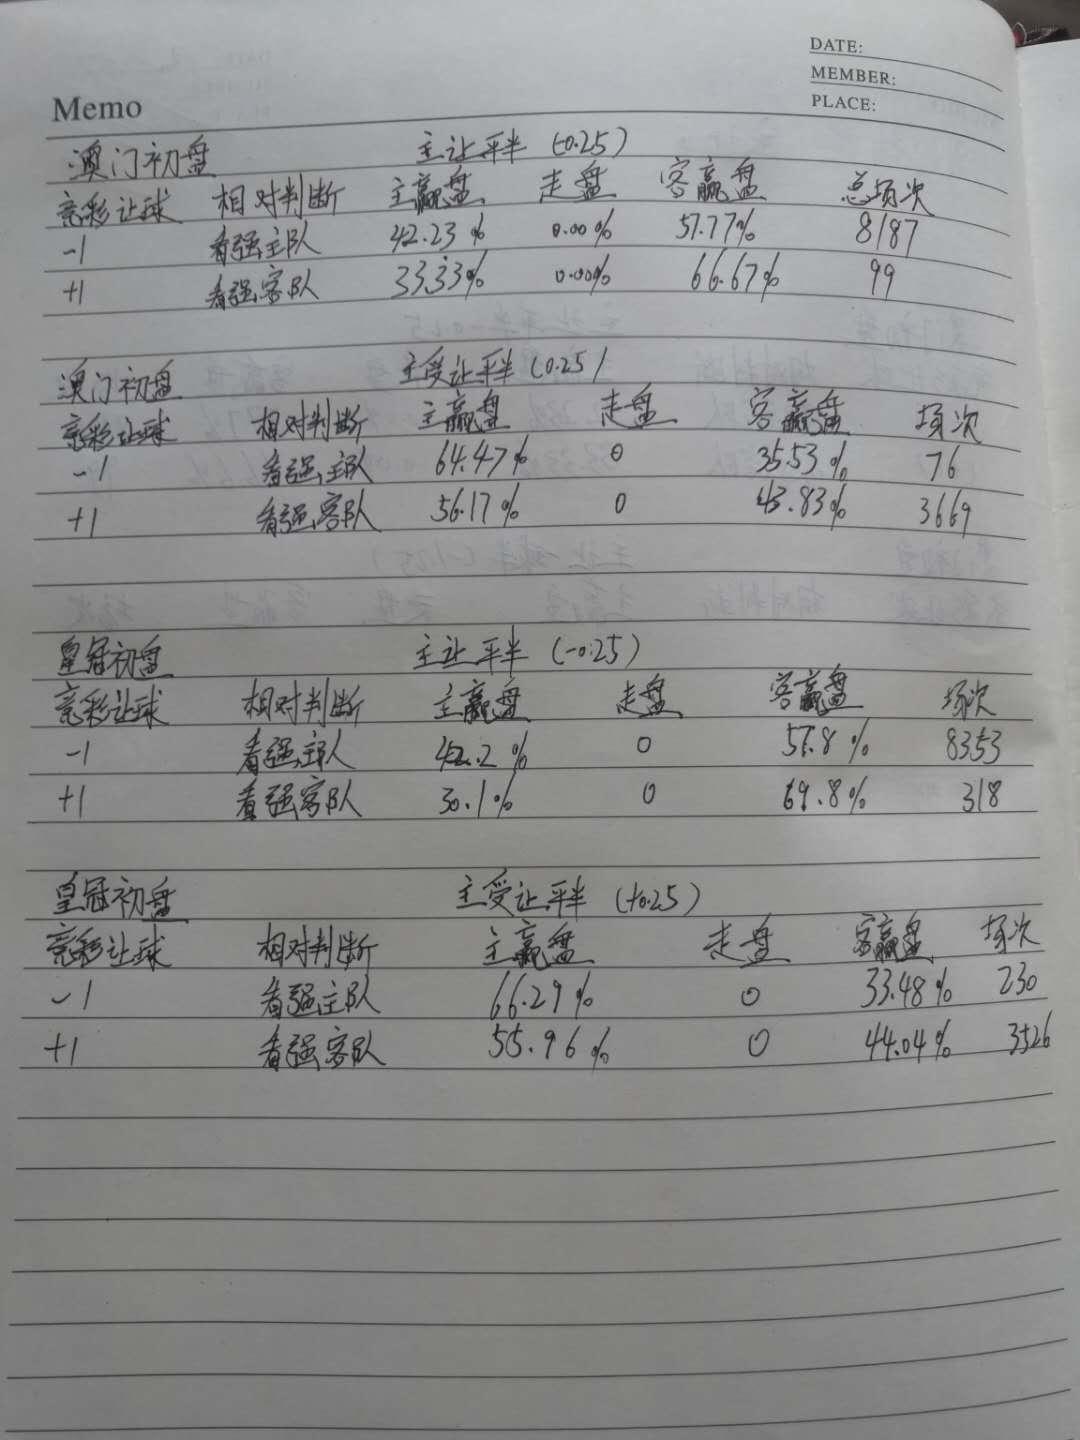 DATE:
MEMBER:
PLACE:
Memo
澳门初盘 主让平半 (-0.25)
竞彩让球 相对判断 主赢盘 走盘 客赢盘 总场次
-1 看强主队 42.23% 0.00% 57.77% 8187
+1 看强客队 33.33% 0.00% 66.67% 99
澳门初盘 主受让平半 (0.25)
竞彩让球 相对判断 主赢盘 走盘 客赢盘 场次
-1 看强主队 64.47% 0 35.53% 76
+1 看强客队 56.17% 0 43.83% 3669
皇冠初盘 主让平半 (-0.25)
竞彩让球 相对判断 主赢盘 走盘 客赢盘 场次
-1 看强主队 42.2% 0 57.8% 8353
+1 看强客队 30.1% 0 69.8% 318
皇冠初盘 主受让平半 (+0.25)
竞彩让球 相对判断 主赢盘 走盘 客赢盘 场次
-1 看强主队 66.29% 0 33.48% 230
+1 看强客队 55.96% 0 44.04% 3526